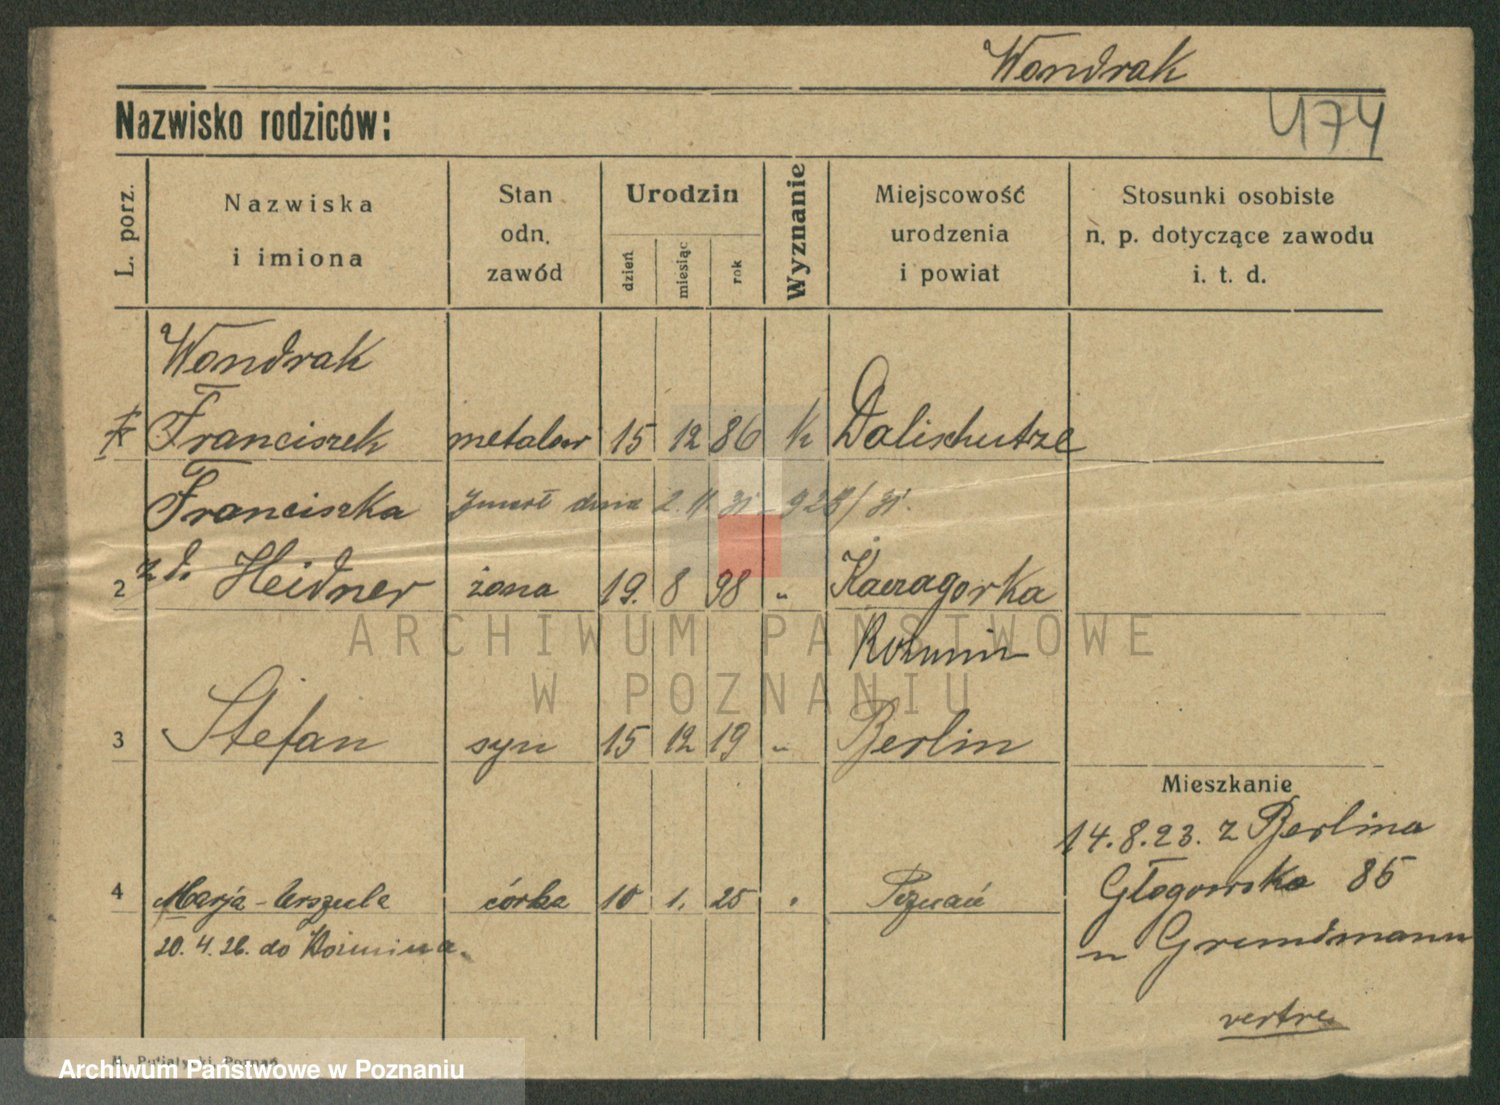 Wondrak
474
Nazwisko rodziców:
L. porz.
Nazwiska
i imiona
Stan
odn.
zawód
Urodzin
dzień
miesiąc
rok
Wyznanie
Miejscowość
urodzenia
i powiat
Stosunki osobiste
n. p. dotyczące zawodu
i. t. d.
Wondrak
Franciszek metalow 15 12 86 k Dalischutze
Franciszka zmarł dnia 2. 11. 31
2 z d. Heidner żona 19. 8 98 " Kaczagorka
Kozmin
3 Stefan syn 15 12 19 " Berlin
Mieszkanie
14. 8. 23. z Berlina
Głogowska 85
u Grundmann
4 Marja-Urszula córka 10 1. 25 " Poznań
20. 4. 26. do Kozmina.
vertre
ARCHIWUM PAŃSTWOWE
W POZNANIU
Archiwum Państwowe w Poznaniu